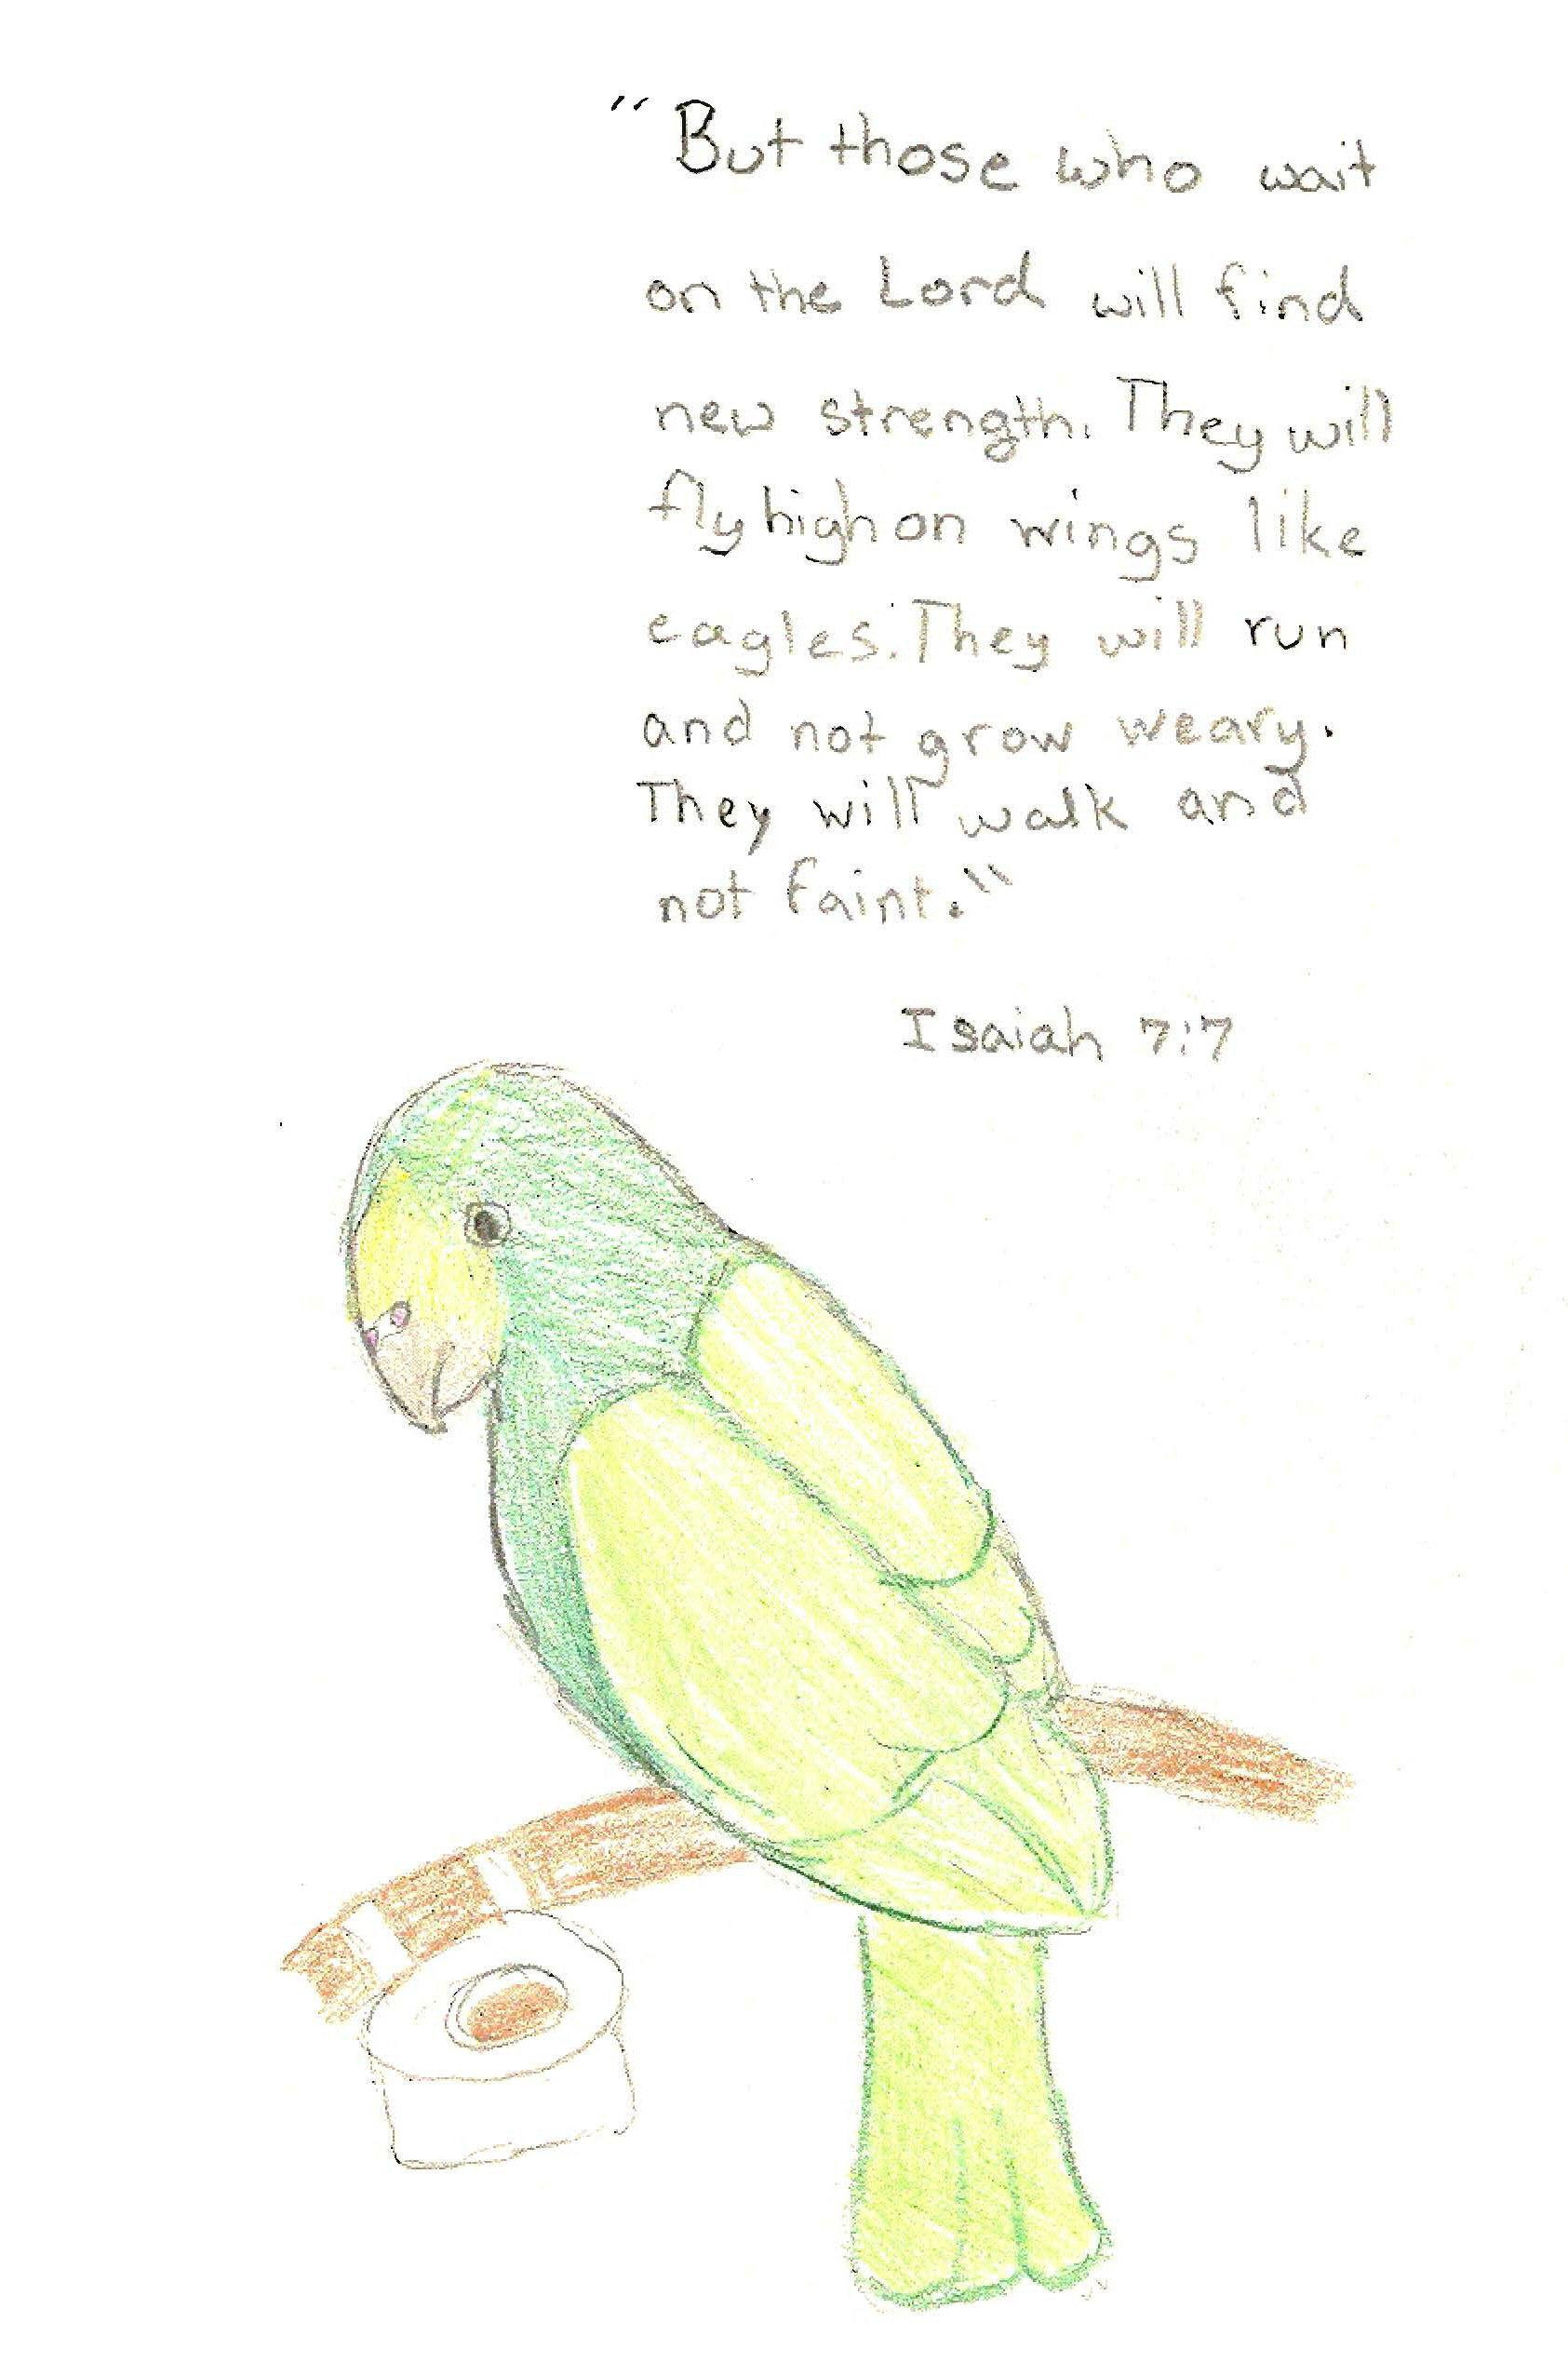 "But those who wait
on the Lord will find
new strength. They will
fly high on wings like
eagles. They will run
and not grow weary.
They will walk and
not faint."
Isaiah 7:7